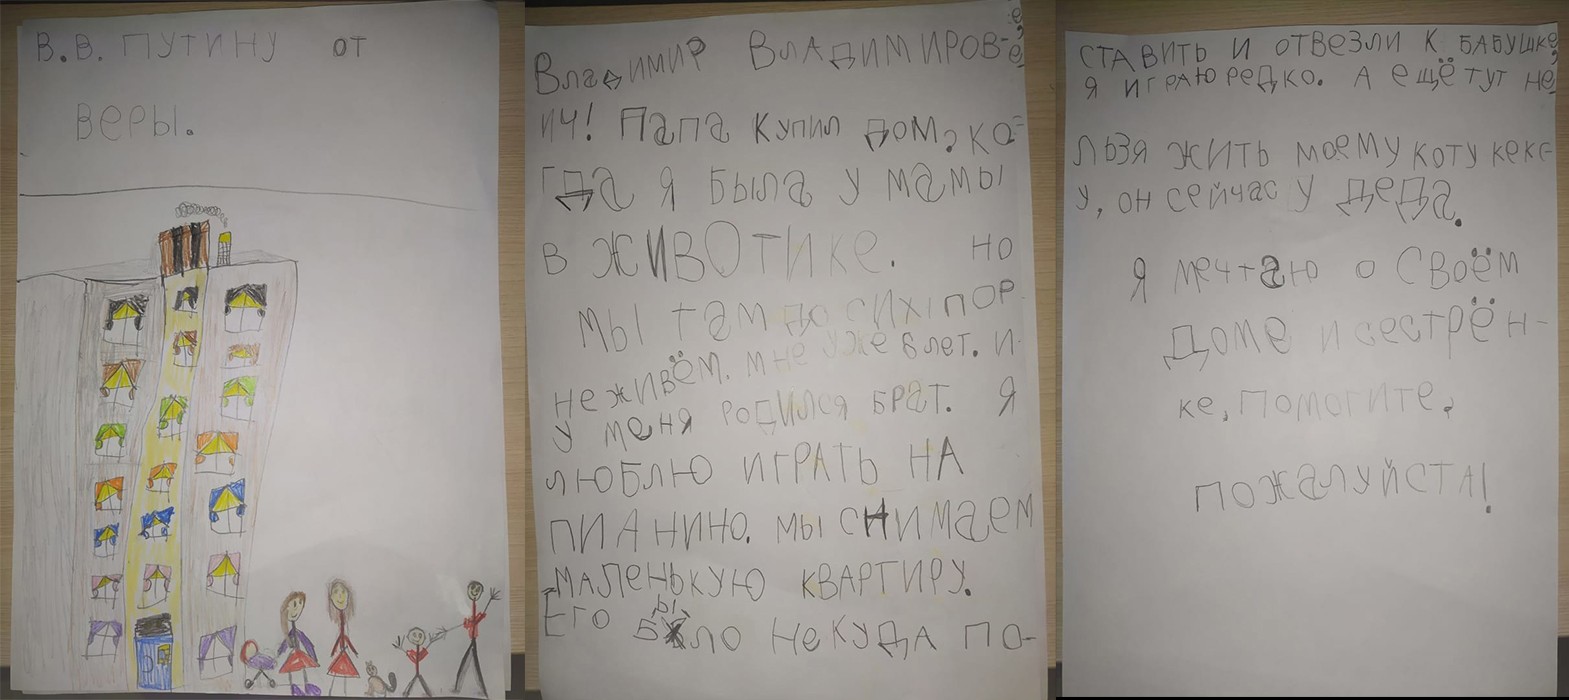 В.В. ПУТИНУ ОТ
ВЕРЫ.
ВЛАДИМИР ВЛАДИМИРОВ-
ИЧ! ПАПА КУПИЛ ДОМ, КО-
ГДА Я БЫЛА У МАМЫ
В ЖИВОТИКЕ. НО
МЫ ТАМ ДО СИХ ПОР
НЕ ЖИВЁМ. МНЕ УЖЕ 6 ЛЕТ. И
У МЕНЯ РОДИЛСЯ БРАТ. Я
ЛЮБЛЮ ИГРАТЬ НА
ПИАНИНО. МЫ СНИМАЕМ
МАЛЕНЬКУЮ КВАРТИРУ.
ЕГО БЫЛО НЕКУДА ПО-
СТАВИТЬ И ОТВЕЗЛИ К БАБУШКЕ,
Я ИГРАЮ РЕДКО. А ЕЩЁ ТУТ НЕ
ЛЬЗЯ ЖИТЬ МОЕМУ КОТУ КЕКС
У, ОН СЕЙЧАС У ДЕДА.
Я МЕЧТАЮ О СВОЁМ
ДОМЕ И СЕСТРЁН-
КЕ, ПОМОГИТЕ,
ПОЖАЛУЙСТА!